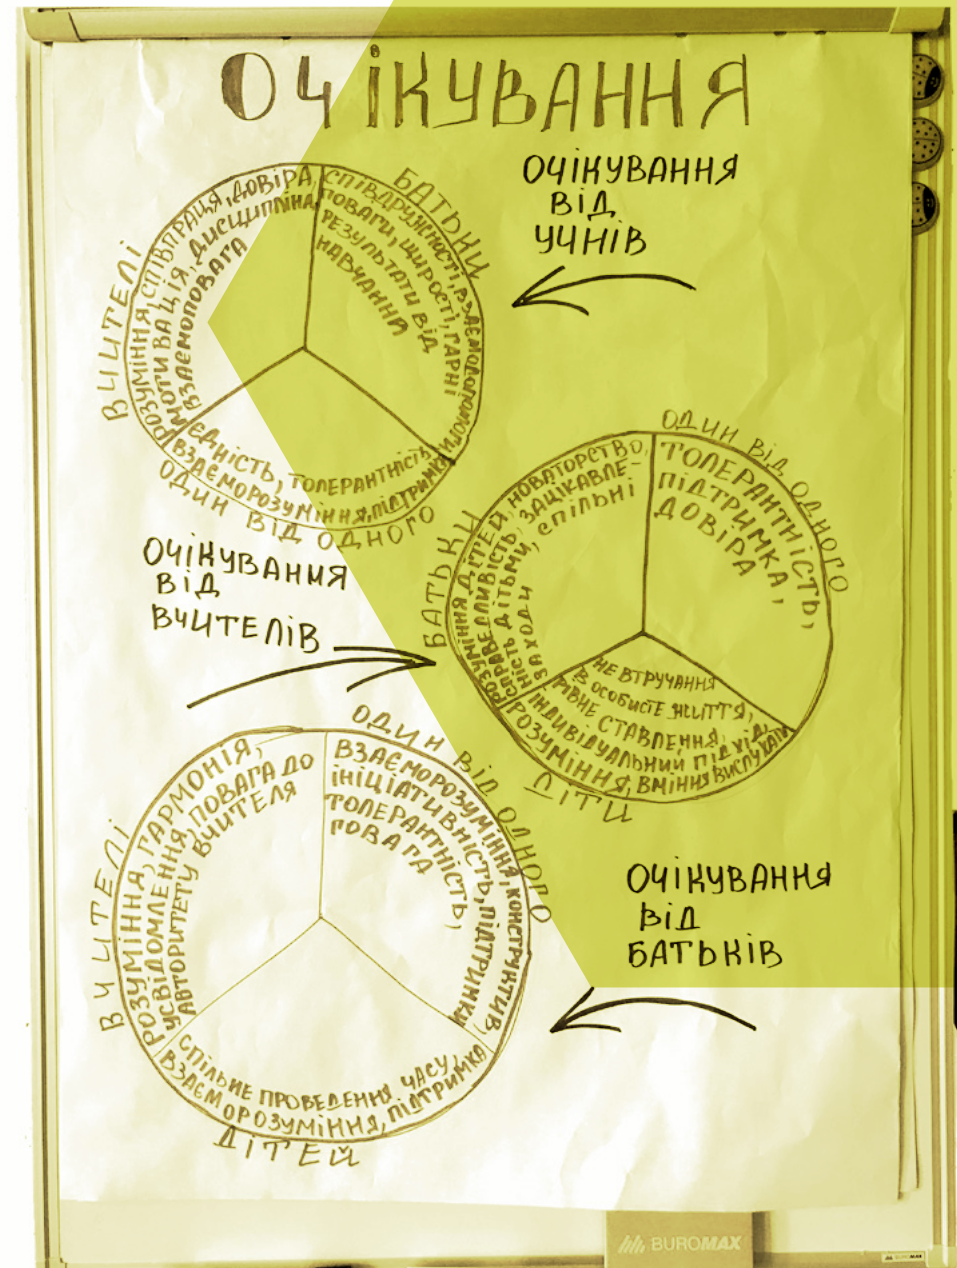 ОЧІКУВАННЯ
ОЧІКУВАННЯ
ВІД
УЧНІВ
ВЧИТЕЛІ
РОЗУМІННЯ, СПІВПРАЦЯ, ДОВІРА,
МОТИВАЦІЯ, ДИСЦИПЛІНА,
ВЗАЄМОПОВАГА
БАТЬКИ
СПІВДРУЖНОСТІ, ВЗАЄМОДОПОМОГИ
ПОВАГИ, ЩИРОСТІ, ГАРНІ
РЕЗУЛЬТАТИ ВІД
НАВЧАННЯ
ЄДНІСТЬ, ТОЛЕРАНТНІСТЬ
ВЗАЄМОРОЗУМІННЯ, ПІДТРИМКА
ОДИН ВІД ОДНОГО
ОЧІКУВАННЯ
ВІД
ВЧИТЕЛІВ
БАТЬКИ
РОЗУМІННЯ ДІТЕЙ, НОВАТОРСТВО,
СПРАВЕДЛИВІСТЬ, ЗАЦІКАВЛЕ-
НІСТЬ ДІТЬМИ, СПІЛЬНІ
ЗАХОДИ
ОДИН ВІД ОДНОГО
ТОЛЕРАНТНІСТЬ,
ПІДТРИМКА,
ДОВІРА
НЕ ВТРУЧАННЯ
В ОСОБИСТЕ ЖИТТЯ,
РІВНЕ СТАВЛЕННЯ,
ІНДИВІДУАЛЬНИЙ ПІДХІД,
РОЗУМІННЯ, ВМІННЯ ВИСЛУХАТИ
ДІТИ
ОЧІКУВАННЯ
ВІД
БАТЬКІВ
ВЧИТЕЛІ
РОЗУМІННЯ, ГАРМОНІЯ,
УСВІДОМЛЕННЯ, ПОВАГА ДО
АВТОРИТЕТУ ВЧИТЕЛЯ
ОДИН ВІД ОДНОГО
ВЗАЄМОРОЗУМІННЯ, КОНСТРУКТИВ,
ІНІЦІАТИВНІСТЬ, ПІДТРИМКИ
ТОЛЕРАНТНІСТЬ,
ПОВАГА
СПІЛЬНЕ ПРОВЕДЕННЯ ЧАСУ,
ВЗАЄМОРОЗУМІННЯ, ПІДТРИМКА
ДІТЕЙ
BUROMAX
BUROMAX